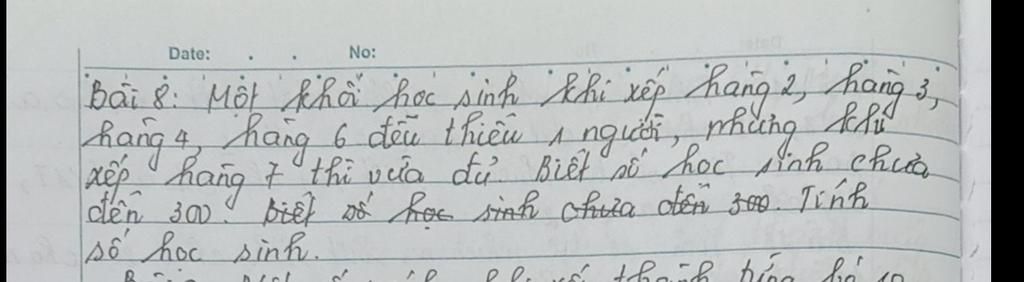 Date: . . No:
Bài 8: Một khối học sinh khi xếp hàng 2, hàng 3,
hàng 4, hàng 6 đều thiếu 1 người, nhưng khi
xếp hàng 7 thì vừa đủ. Biết số học sinh chưa
đến 300. Biết số học sinh chưa đến 300. Tính
số học sinh.